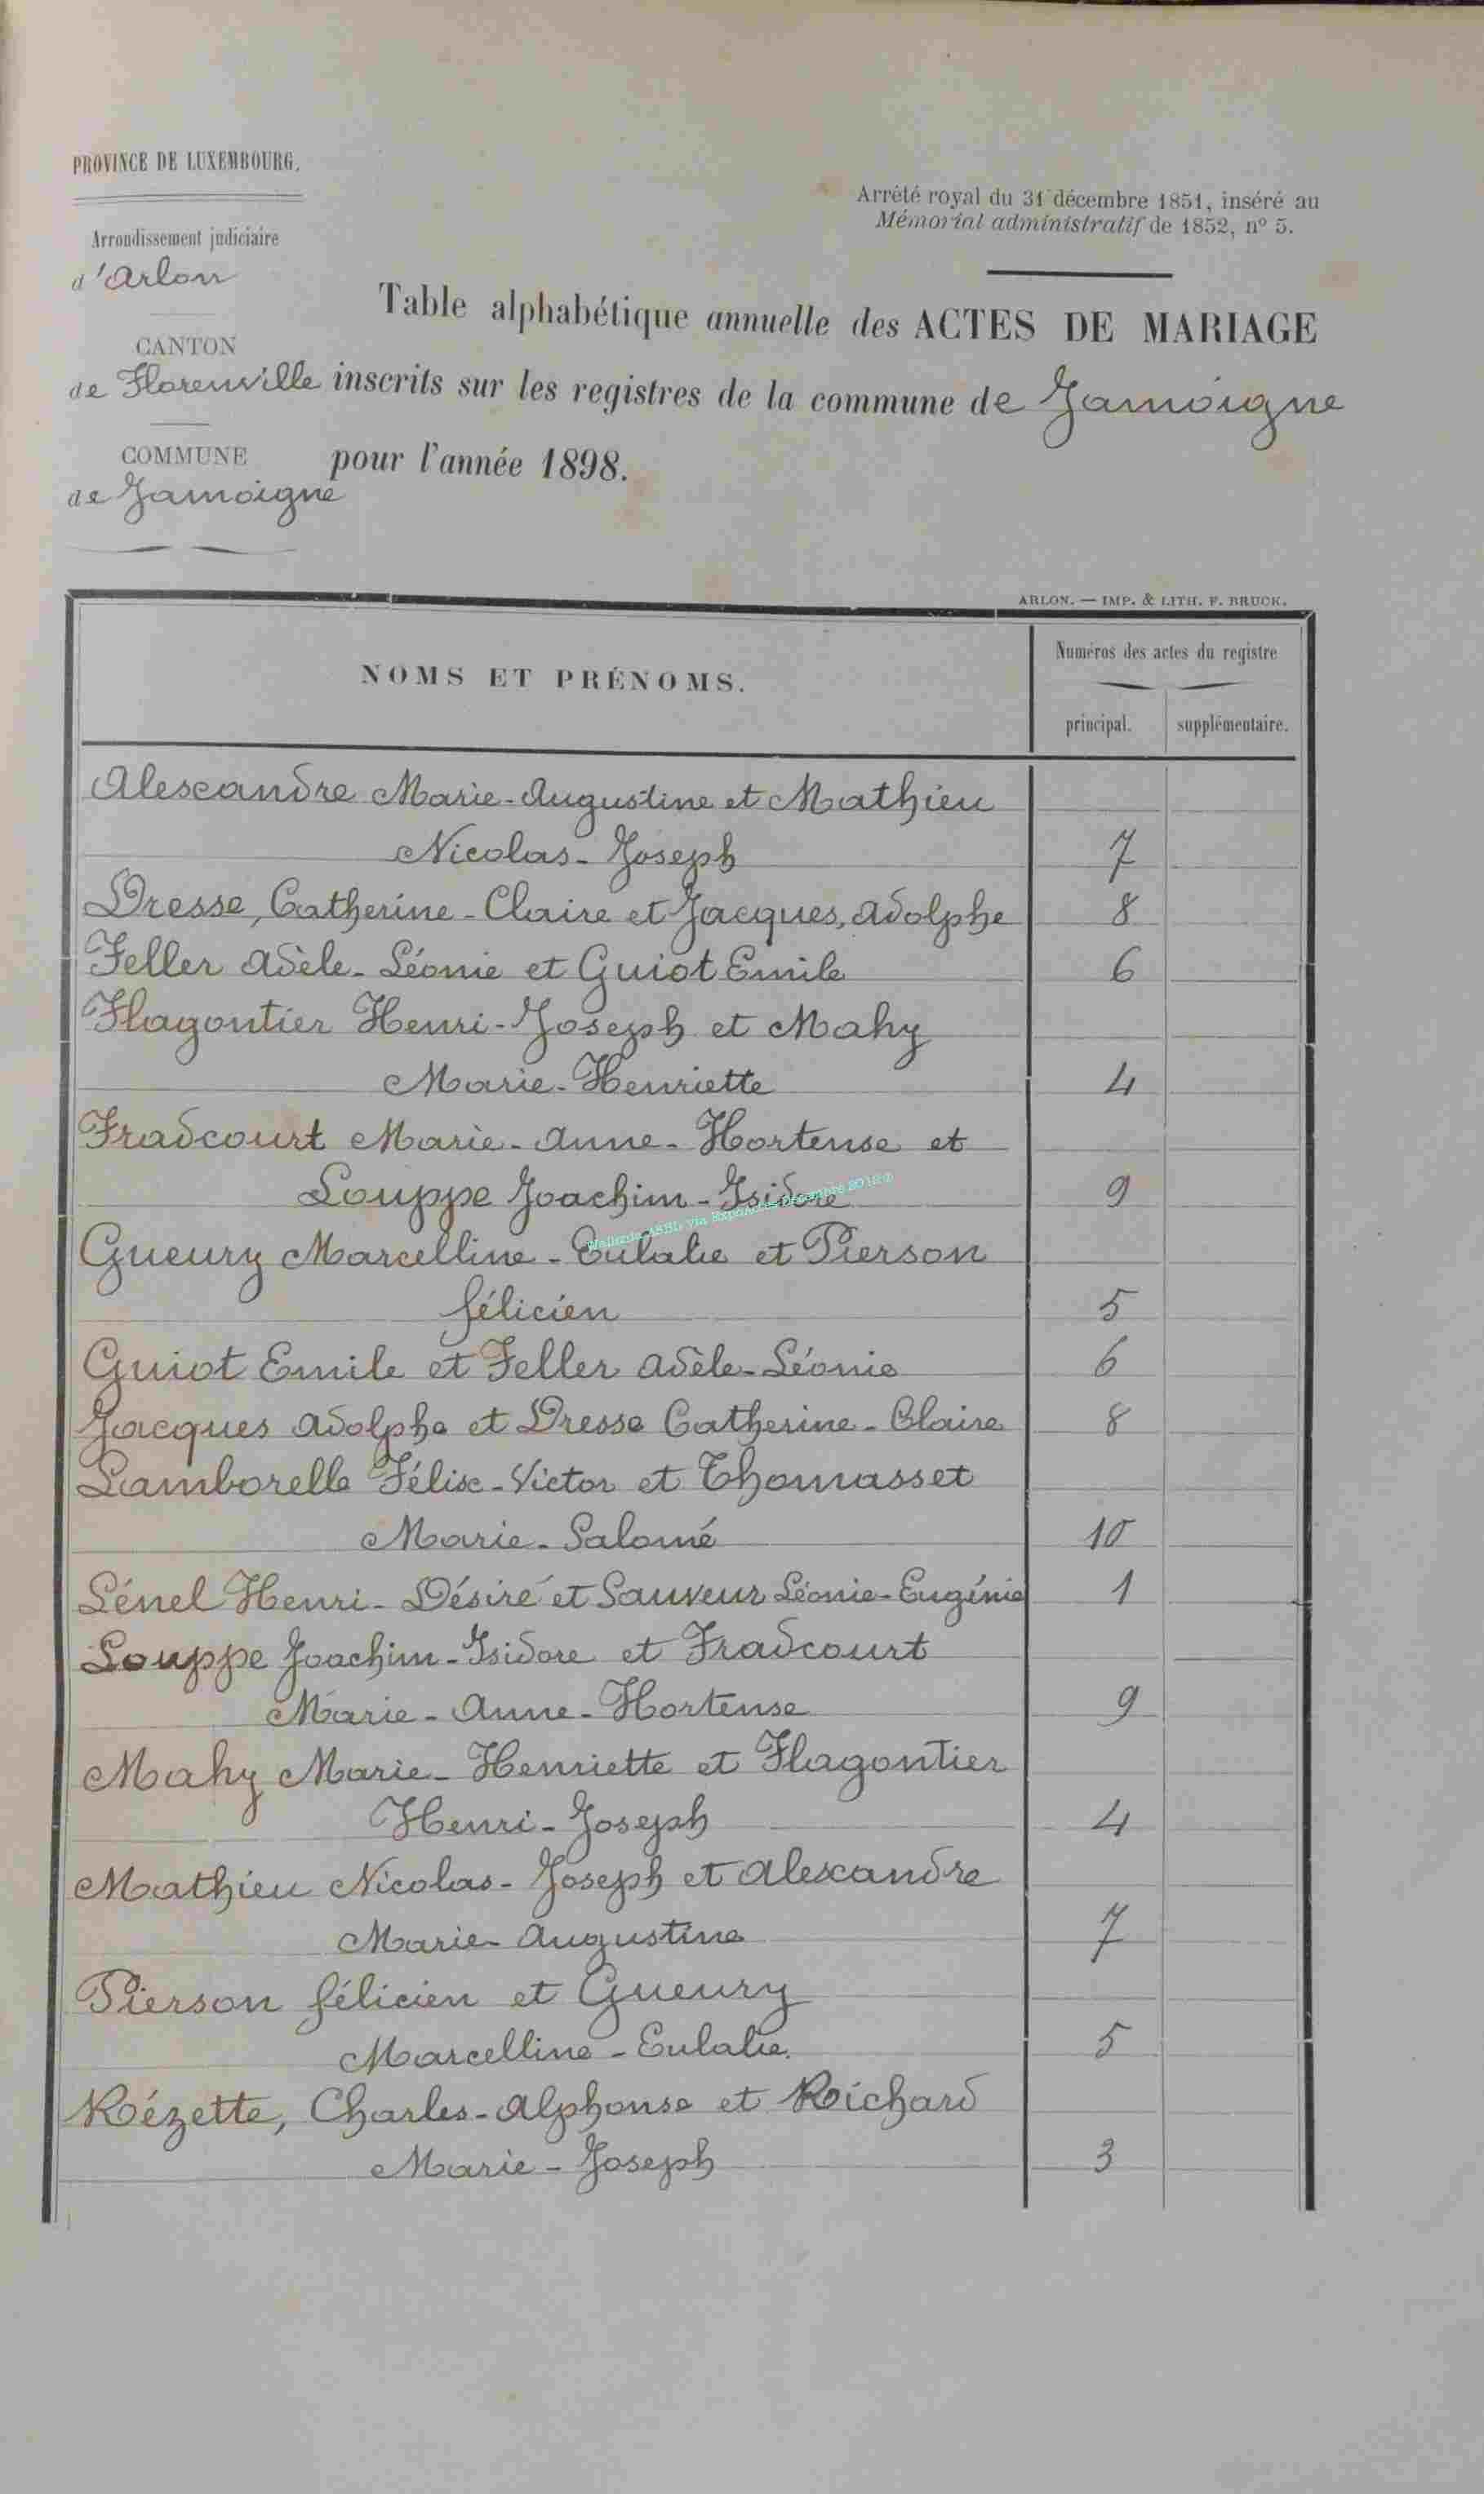 PROVINCE DE LUXEMBOURG,
Arrondissement judiciaire
d'Arlon
CANTON
de Florenville
COMMUNE
de Jamoigne
Arrêté royal du 31 décembre 1851, inséré au
Mémorial administratif de 1852, nº 5.
Table alphabétique annuelle des ACTES DE MARIAGE
inscrits sur les registres de la commune de Jamoigne
pour l'année 1898.
ARLON. — IMP. & LITH. F. BRUCK.
NOMS ET PRÉNOMS.
Numéros des actes du registre
principal. supplémentaire.
Alexandre Marie-Augustine et Mathieu
Nicolas-Joseph 7
Dresse, Catherine-Claire et Jacques, Adolphe 8
Feller Adèle-Léonie et Guiot Emile 6
Flagontier Henri-Joseph et Mahy
Marie-Henriette 4
Fradcourt Marie-Anne-Hortense et
Louppe Joachim-Isidore 9
Gueury Marcelline-Eulalie et Pierson
félicien 5
Guiot Emile et Feller Adèle-Léonie 6
Jacques Adolphe et Dresse Catherine-Claire 8
Lamborelle Félix-Victor et Thomasset
Marie-Salomé 10
Lénel Henri-Désiré et Sauveur Léonie-Eugénie 1
Louppe Joachim-Isidore et Fradcourt
Marie-Anne-Hortense 9
Mahy Marie-Henriette et Flagontier
Henri-Joseph 4
Mathieu Nicolas-Joseph et Alexandre
Marie-Augustine 7
Pierson félicien et Gueury
Marcelline-Eulalie. 5
Rézette, Charles-Alphonse et Richard
Marie-Joseph 3